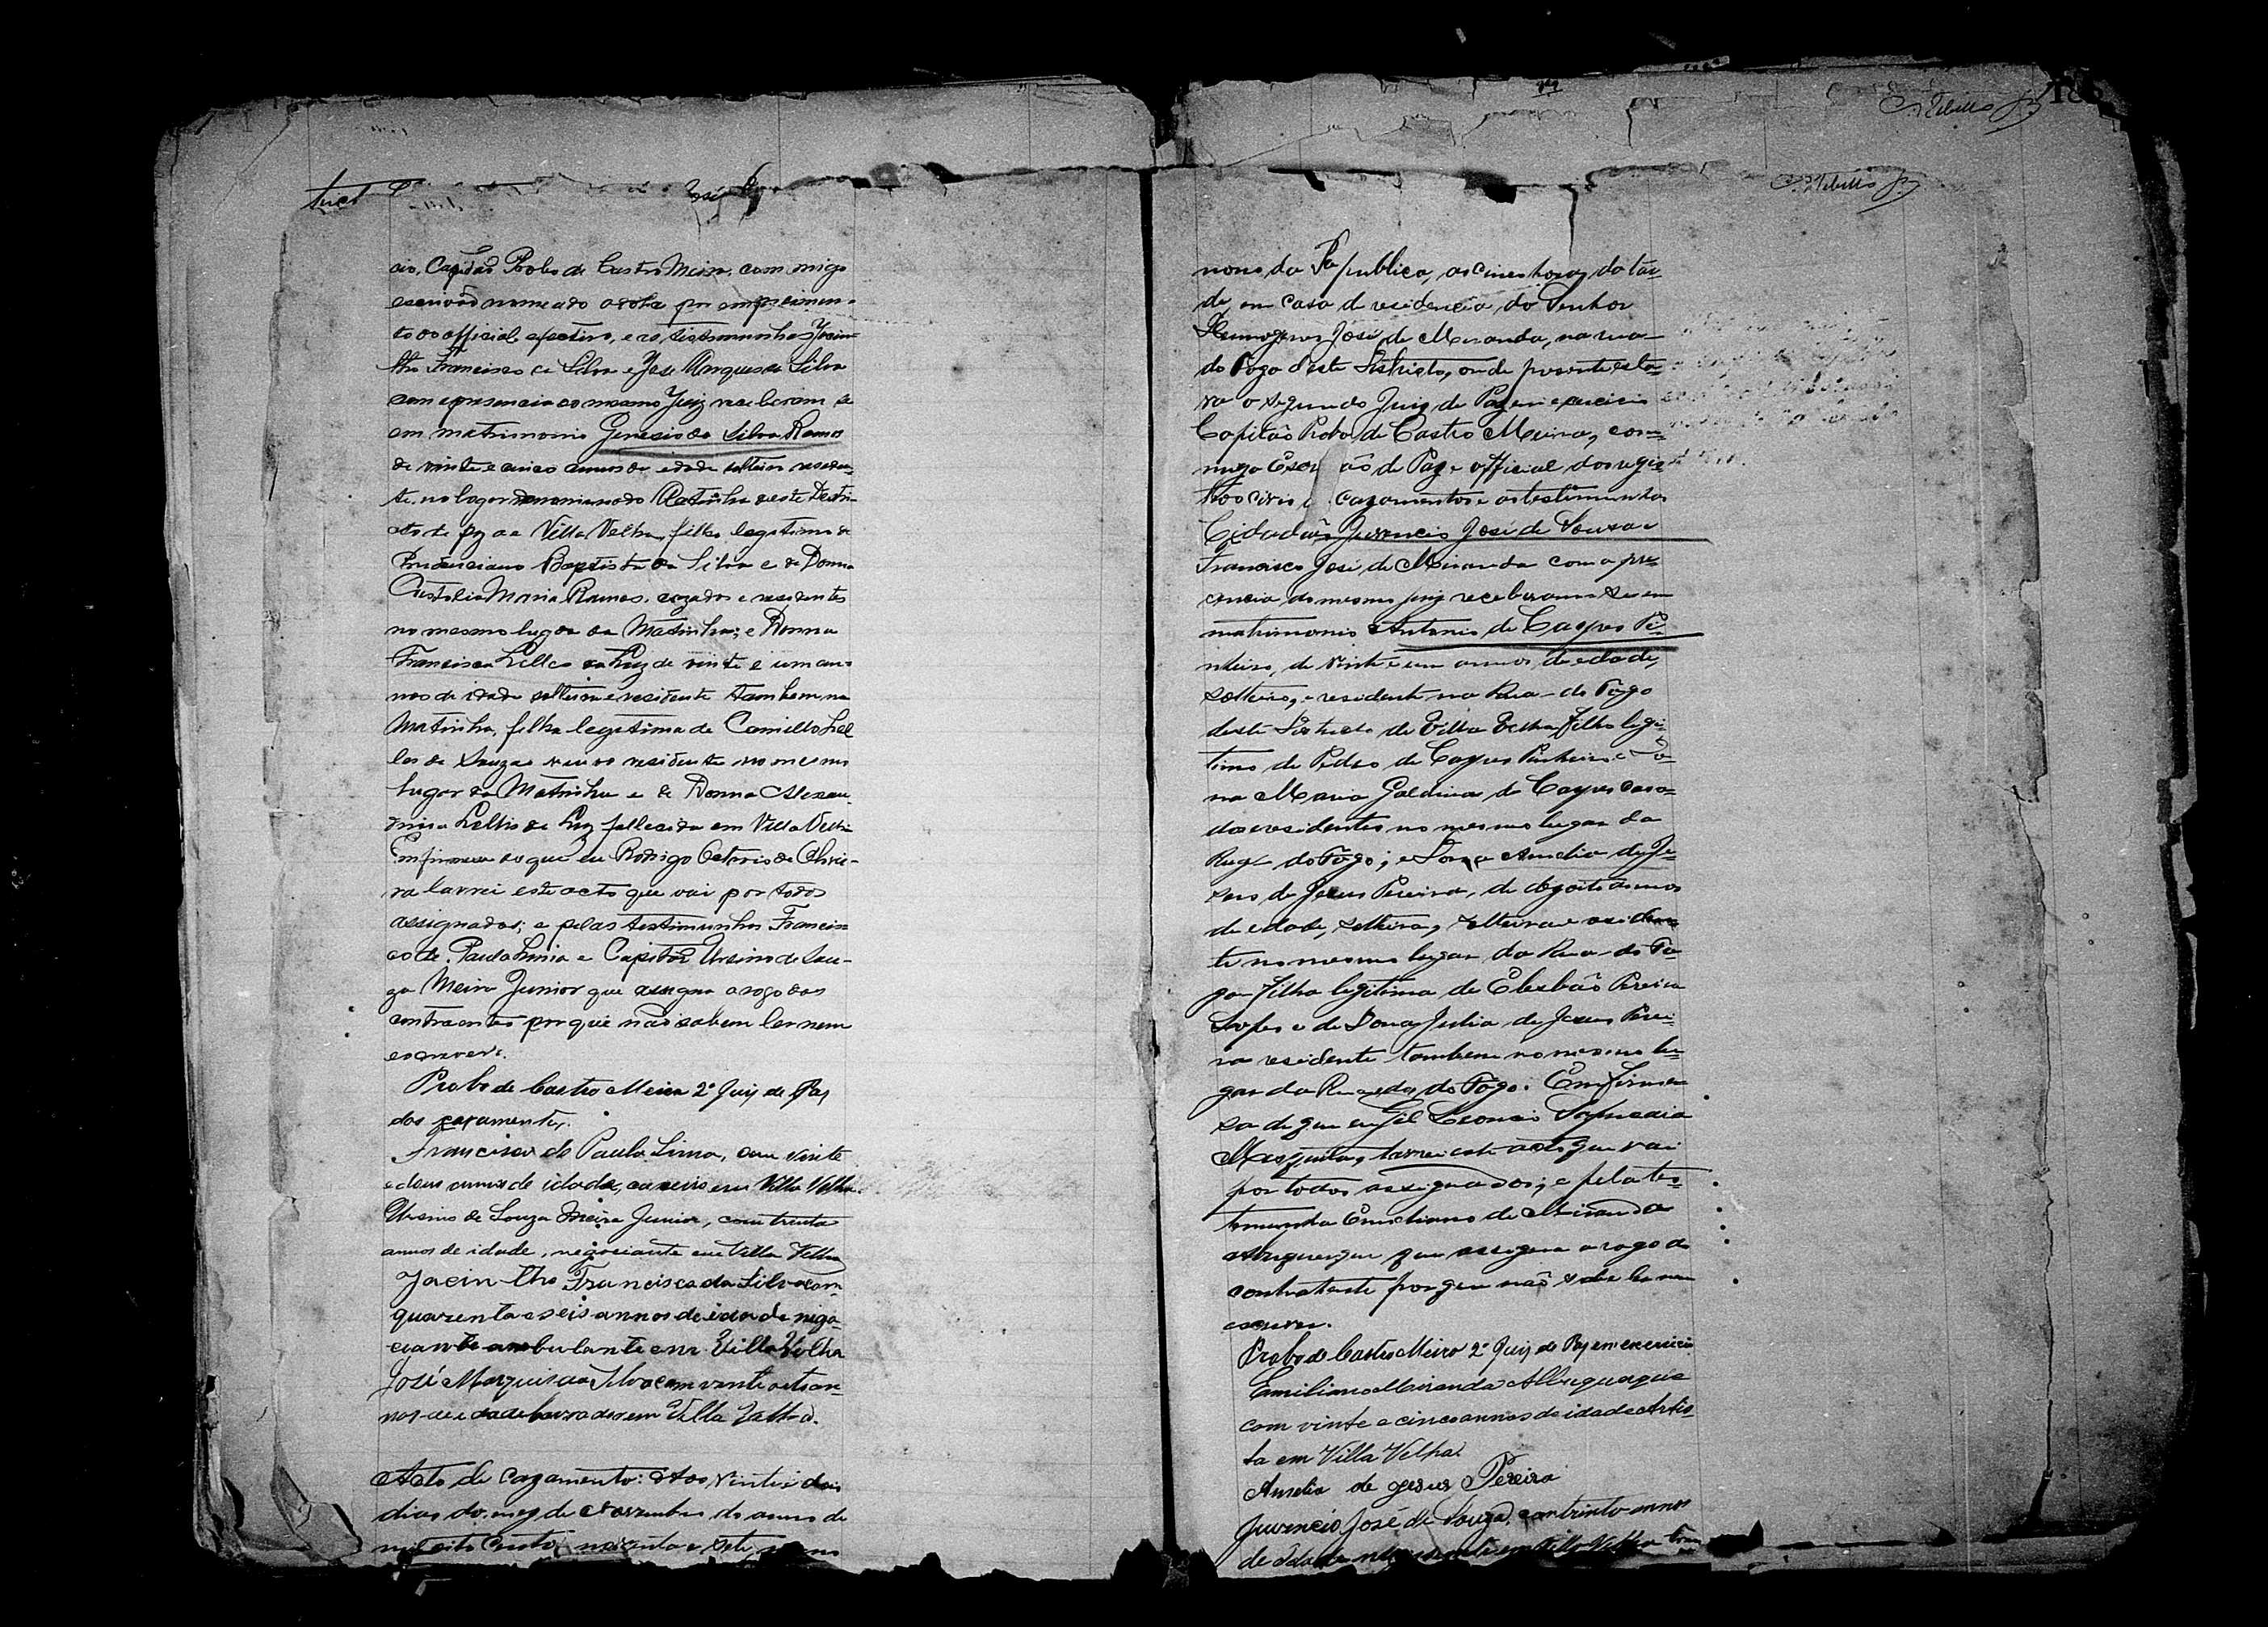 cio, Capitão Probo de Castro Meira, com migo
escrivão nomeado
to do official efectivo, e as testemunhas Jacin-
tho Francisco da Silva e José Marques da Silva
com a presencia do mesmo Juiz receberam se
em matrimonio Genesio da Silva Ramos
de vinte e cinco annos de edade solteiro residen-
te no lugar denominado Matinha deste Destri-
cto de paz da Villa Velha, filho legitimo de
Prudenciano Baptista da Silva e de Donna
Custodia Maria Ramos, cazados e residentes
no mesmo lugar da Matinha; e Donna
Francisca Lellis da Luz de vinte e um an-
nos de idade solteira e residente tambem na
Matinha, filha legitima de Camillo Lel
les de Souza viuvo residente no mesmo
lugar da Matinha e de Donna Alexan-
drina Lellis da Luz fallecida em Villa Velha
Em firmeza do que eu Rodrigo Octavio de Olivei-
ra lavrei este acto que vai por todos
assignados; e pelas testimunhas Francis
co de Paula Lima e Capitão Ursino de Sou-
za Meira Junior que assigna a rogo dos
contraentes por que não sabem ler nem
escrever.
Probo de Castro Meira 2º Juiz de Paz
dos cazamentos.
Francisco de Paula Lima, com vinte
e dous annos de idade, caxeiro em Villa Velha.
Ursino de Souza Meira Junior, com trenta
annos de idade, negociante em Villa Velha
Jacintho Francisco da Silva com
quarenta e seis annos de idade nego-
ciante ambulante em Villa Velha
José Marques da Silva com vinte oito an-
nos de edade lavrador em Villa Velha.
Acto de Cazamento: Aos vinte e dois
dias do mez de Novembro do anno de
mil oito centos noventa e sete, nono
nono da Republica, as cinco horas da tar-
de em casa de residencia do Senhor
Hermogenes José de Miranda, na rua
do Fogo deste Districto, onde presente esta-
va o segundo Juiz de Paz em exercicio
Capitão Probo de Castro Meira, com-
migo Escrivão de Paz e official dos regis-
tros civis de cazamentos e as testemunhas
Cidadãos Juvencio José de Souza e
Francisco José de Miranda com a pre-
cencia do mesmo juiz receberam-se em
matrimonio Antonio de Caires Pi-
nheiro, de vinte e um annos de edade,
solteiro, e residente na Rua do Fogo
deste Districto de Villa Velha, filho legi-
timo de Pedro de Caires Pinheiro e Do-
na Maria Galdina de Caires casa-
dos e residentes no mesmo lugar da
Rua do Fogo; e Dona Amelia de Je-
sus de Jesus Pereira, de dezoito annos
de edade, solteira, solteira e residen-
te no mesmo lugar da Rua do Fo-
go, filha legitima de Elesbão Pereira
Lopes e de Dona Julia de Jesus Perei-
ra residente tambem no mesmo lu-
gar da Rua do Fogo. Em firme-
sa de que eu Gil Leoncio
Mesquita, lavrei este acto que vai
por todos assignados; e pela tes-
temunha Emiliano de Miranda
Albuquerque que assigna a rogo do
contratante porque não sabe ler nem
escrever.
Probo de Castro Meira 2º Juiz de Paz em exercicio
Emiliano Miranda Albuquerque
com vinte e cinco annos de idade Artis-
ta em Villa Velha.
Amelia de Jesus Pereira
Juvencio José de Souza, com trinta annos
de idade negociante em Villa Velha